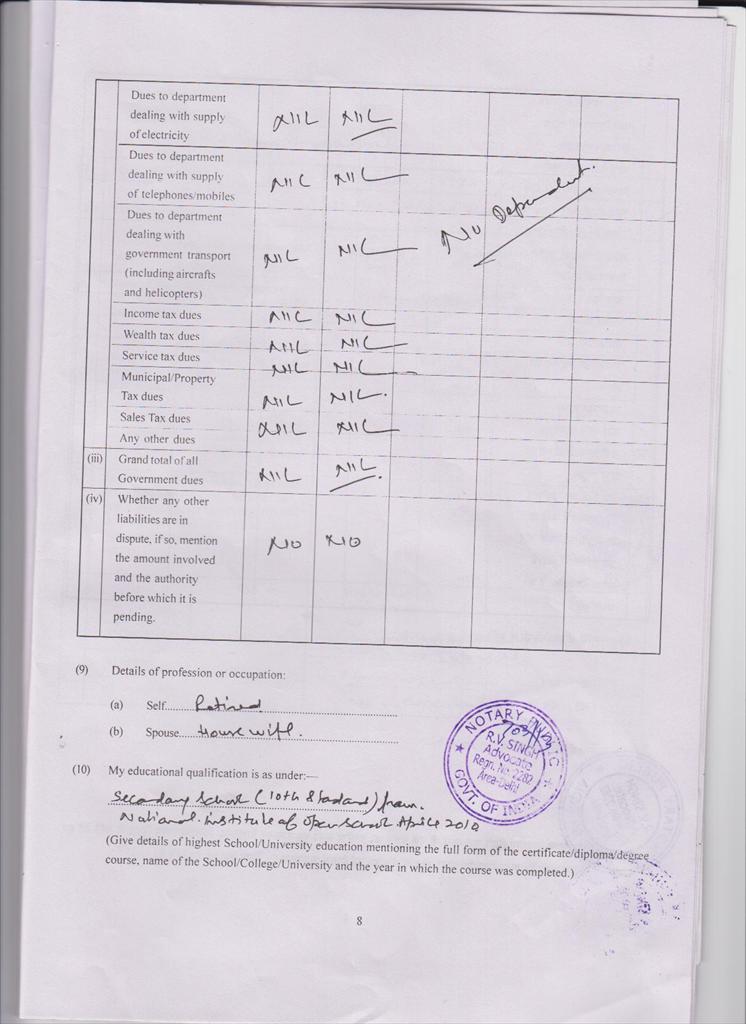 Dues to department
dealing with supply
of electricity
NIL NIL
Dues to department
dealing with supply
of telephones/mobiles
NIL NIL
Dues to department
dealing with
government transport
(including aircrafts
and helicopters)
NIL NIL
No Dependent.
Income tax dues NIL NIL
Wealth tax dues NIL NIL
Service tax dues NIL NIL
Municipal/Property
Tax dues NIL NIL.
Sales Tax dues NIL NIL
Any other dues
(iii) Grand total of all
Government dues NIL NIL.
(iv) Whether any other
liabilities are in
dispute, if so, mention
the amount involved
and the authority
before which it is
pending.
NO NO
(9) Details of profession or occupation:
(a) Self Retired
(b) Spouse House wife.
NOTARY PUBLIC
R.V. SINGH
Advocate
Regn. No. 2282
Area-Delhi
GOVT. OF INDIA
(10) My educational qualification is as under:—
Secondary School (10th Standard) from.
National institute of open school April 2010
(Give details of highest School/University education mentioning the full form of the certificate/diploma/degree
course, name of the School/College/University and the year in which the course was completed.)
8